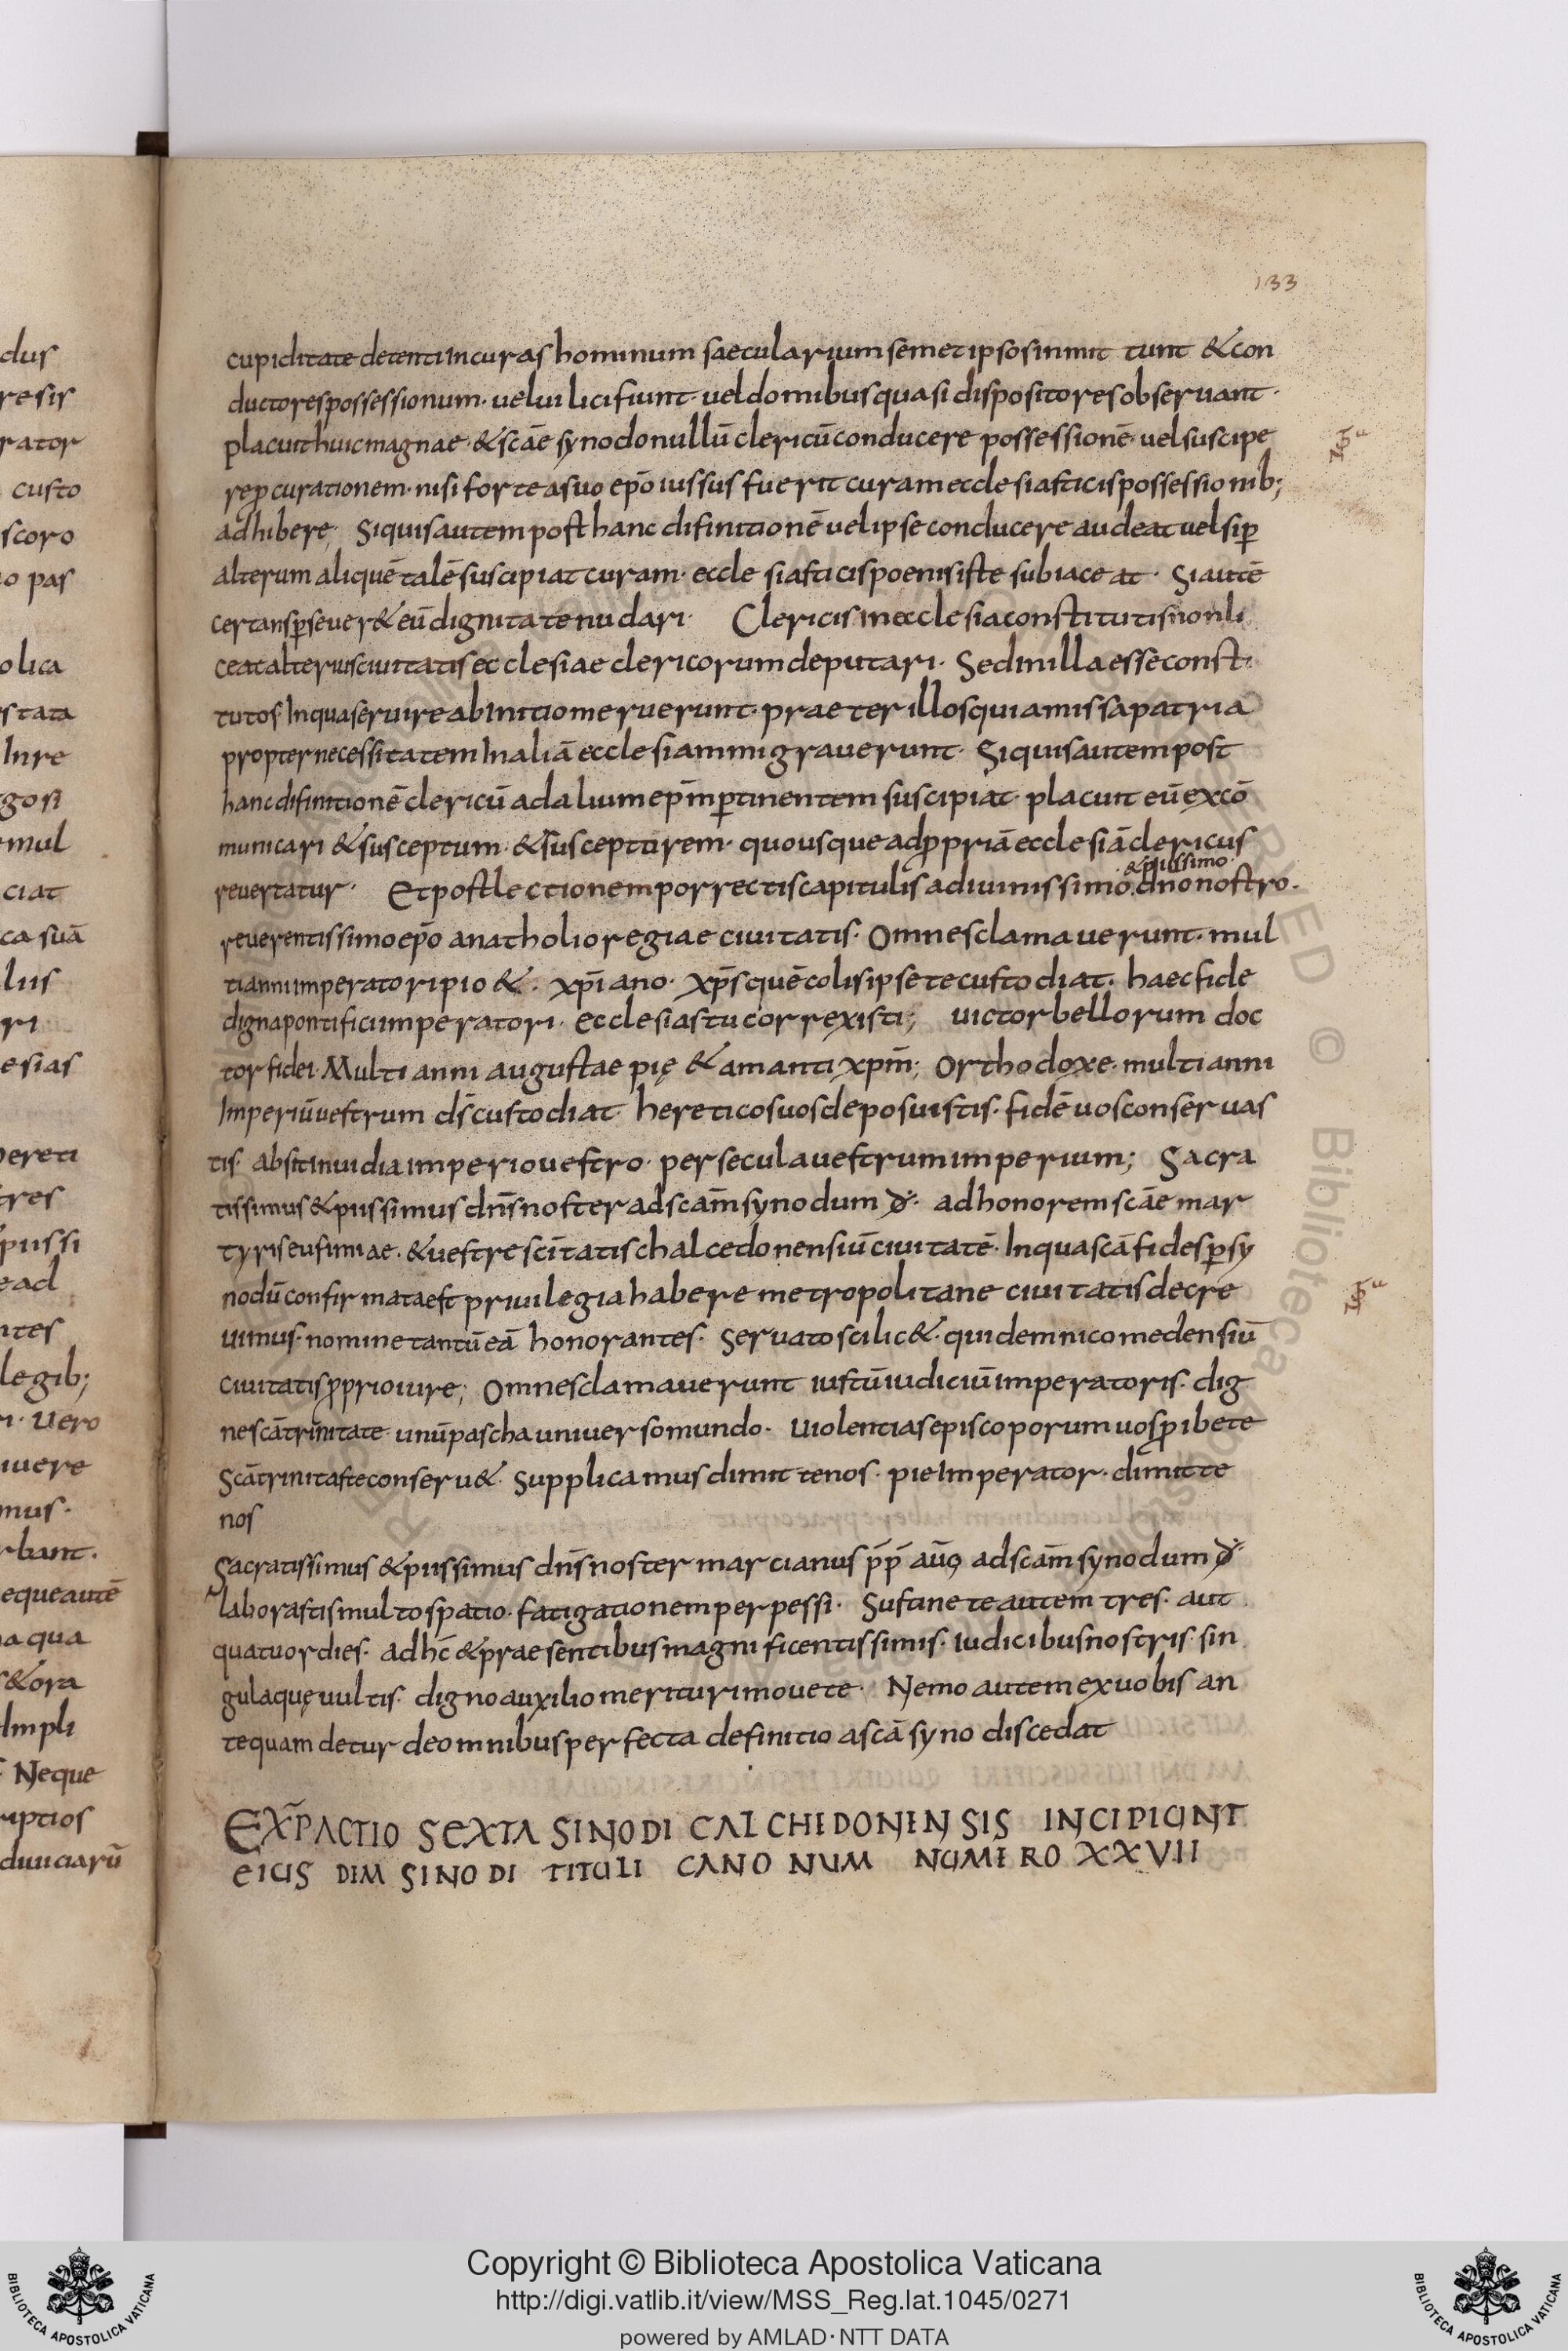 133
cupiditate detenti In curas hominum saecularium semet ipsos inmit tunt & con
ductores possessionum· uel uilici fiunt· uel domibus quasi dispositores obseruant·
placuit huic magnae· & scāe synodo nullū clericū conducere possessionē· uel suscipe
re ꝓcurationem· nisi forte a suo ep̄o iussus fuerit curam ecclesiasticis possessionib;
adhibere; Siquis autem post hanc difinitionē uel ipse conducere audeat uel siꝑ
alterum aliquē talē suscipiat curam· ecclesiasticis poenis iste subiaceat· Si autē
certans ꝑseuer& eū dignitate nudari· Clericis in ecclesia constitutis non li
ceat alterius ciuitatis ecclesiae clericorum deputari· Sed in illa esse consti
tutos In qua seruire ab Initio meruerunt· praeter illos qui amissa patria
propter necessitatem In aliā ecclesiam migrauerunt· Siquis autem post
hanc difinitionē clericū ad alium ep̄m ꝑtinentem suscipiat· placuit eū excō
municari & susceptum· & susceptorem· quousque ad ꝓpriā ecclesiā clericus
& piissimo·
reuertatur· Et post lectionem porrectis capitulis a diuinissimo· dn̄o nostro·
reuerentissimo ep̄o anatholio regiae ciuitatis· Omnes clamauerunt· mul
ti anni imperatori pio &· xp̄iano· xp̄s quē colis ipse te custodiat· haec fide
digna pontifici imperatori· ecclesias tu correxisti; uictor bellorum doc
tor fidei· Multi anni augustae pię & amanti xpm̄; Orthodoxe· multi anni
Imperiū uestrum ds̄ custodiat· hereticos uos deposuistis· fidē uos conseruas
tis· absit inuidia imperio uestro· per secula uestrum imperium; Sacra
tissimus & piissimus dn̄s noster ad scām synodum đ· ad honorem scāe mar
tyris eufimiae· & uestre sc̄itatis chalcedonensiū ciuitatē· In qua scā fides ꝑ sy
nodū confirmata est priuilegia habere metropolitane ciuitatis decre
uimus· nomine tantū eā honorantes· Seruato scilic&· quidem nicomedensiū
ciuitatis ꝓprio iure; Omnes clamauerunt iustū iudiciū imperatoris· dig
ne scā trinitate· unū pascha uniuerso mundo· Uiolentias episcoporum uos ꝓibete
Scā trinitas te conseru&· Supplicamus dimit te nos· pie Imperator· dimitte
nos
Sacratissimus & piissimus dn̄s noster marcianus p̄p̄ aūg ad scām synodum đ
laborastis multo spatio· fatigationem perpessi· Sustinete autem tres· aut
quatuor dies· adhc̄ & praesentibus magnificentissimis· iudicibus nostris· sin
gula quę uultis· digno auxilio merituri mouete· Nemo autem ex uobis an
tequam detur de omnibus perfecta definitio a scā syno discedat
EXP̄ ACTIO SEXTA SINODI CALCHEDONENSIS INCIPIUNT
EIUSDIM SINODI TITULI CANONUM NUMERO XXVII
Copyright © Biblioteca Apostolica Vaticana
http://digi.vatlib.it/view/MSS_Reg.lat.1045/0271
powered by AMLAD·NTT DATA